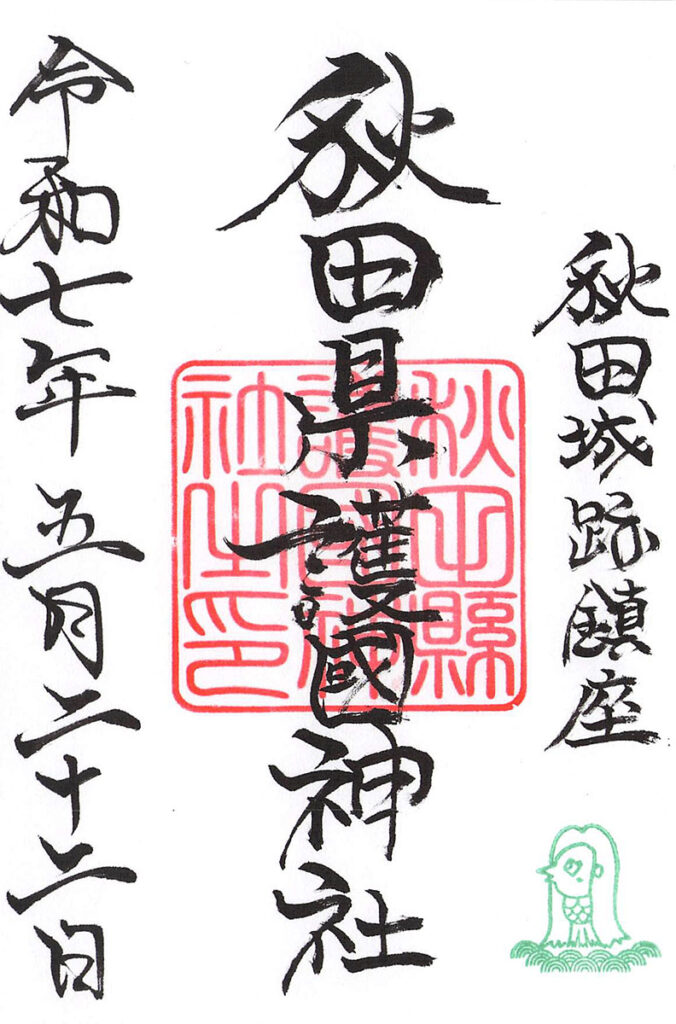 秋田城跡鎮座
秋田県護國神社
秋田縣
護國神
社之印
令和七年五月二十二日